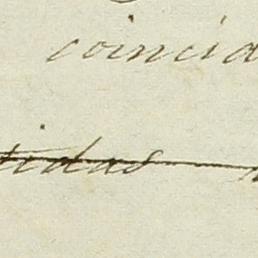 coincid
tidas